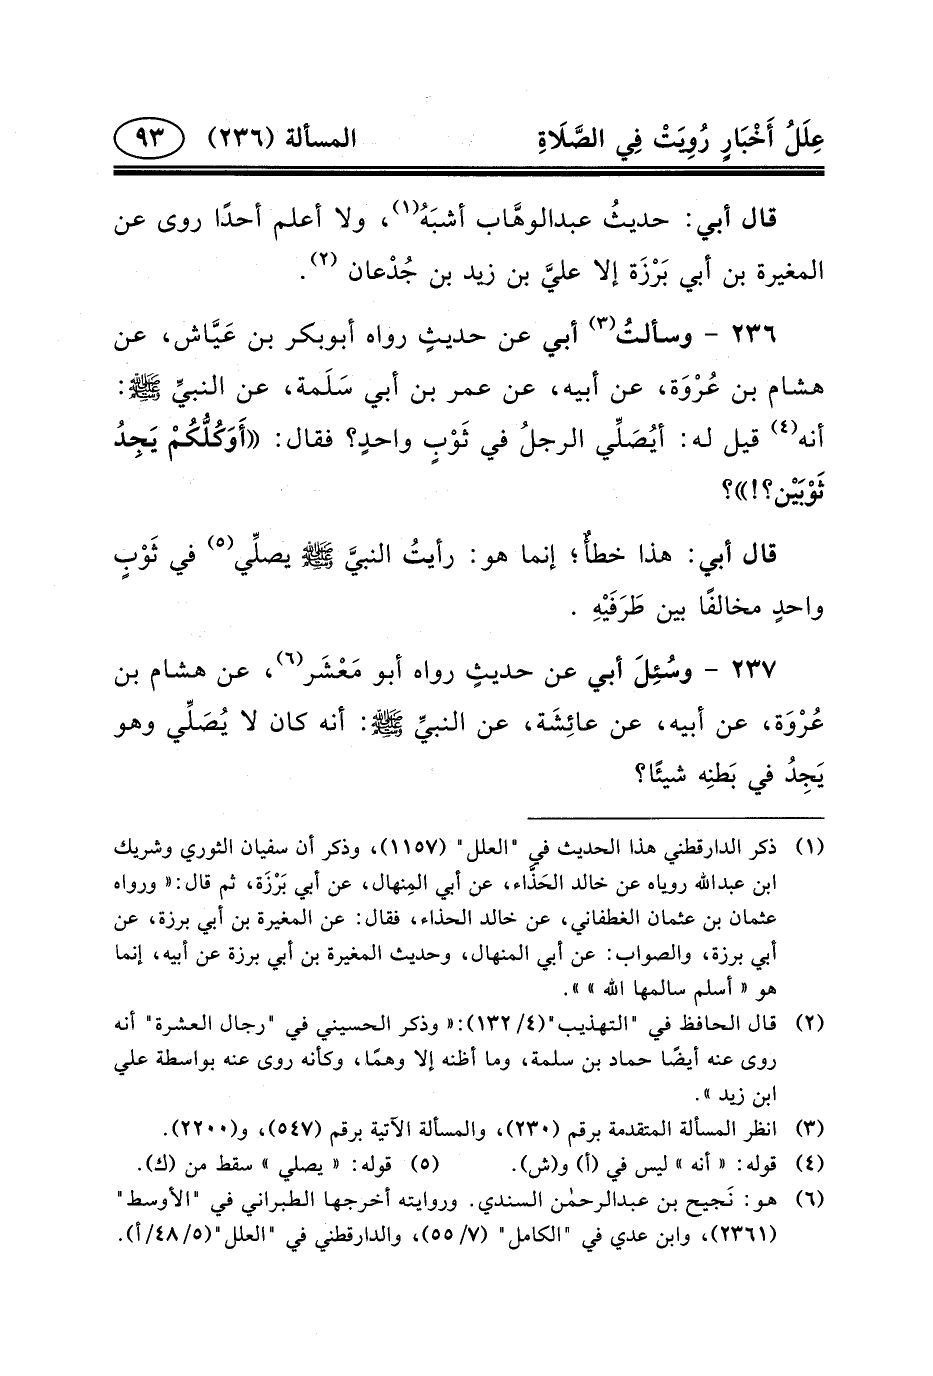 عِلَلُ أَخْبَارٍ رُوِيَتْ فِي الصَّلَاةِ المسألة (٢٣٦) ٩٣
قال أبي: حديثُ عبدالوهَّاب أشبَهُ(١)، ولا أعلم أحدًا روى عن
المغيرة بن أبي بَرْزَة إلا عليَّ بن زيد بن جُدْعان (٢).
٢٣٦ - وسألتُ(٣) أبي عن حديثٍ رواه أبوبكر بن عَيَّاش، عن
هشام بن عُرْوَة، عن أبيه، عن عمر بن أبي سَلَمة، عن النبيِّ ﷺ:
أنه(٤) قيل له: أيُصَلِّي الرجلُ في ثَوْبٍ واحدٍ؟ فقال: «أَوَكُلُّكُمْ يَجِدُ
ثَوْبَيْن؟!»؟
قال أبي: هذا خطأٌ؛ إنما هو: رأيتُ النبيَّ ﷺ يصلِّي(٥) في ثَوْبٍ
واحدٍ مخالفًا بين طَرَفَيْهِ .
٢٣٧ - وسُئِلَ أبي عن حديثٍ رواه أبو مَعْشَر(٦)، عن هشام بن
عُرْوَة، عن أبيه، عن عائِشَة، عن النبيِّ ﷺ: أنه كان لا يُصَلِّي وهو
يَجِدُ في بَطنِه شيئًا؟
(١) ذكر الدارقطني هذا الحديث في "العلل" (١١٥٧)، وذكر أن سفيان الثوري وشريك
ابن عبدالله روياه عن خالد الحَذَّاء، عن أبي المِنهال، عن أبي بَرْزَة، ثم قال:« ورواه
عثمان بن عثمان الغطفاني، عن خالد الحذاء، فقال: عن المغيرة بن أبي برزة، عن
أبي برزة، والصواب: عن أبي المنهال، وحديث المغيرة بن أبي برزة عن أبيه، إنما
هو « أسلم سالمها الله » ».
(٢) قال الحافظ في "التهذيب"(٤/ ١٣٢):« وذكر الحسيني في "رجال العشرة" أنه
روى عنه أيضًا حماد بن سلمة، وما أظنه إلا وهمًا، وكأنه روى عنه بواسطة علي
ابن زيد ».
(٣) انظر المسألة المتقدمة برقم (٢٣٠)، والمسألة الآتية برقم (٥٤٧)، و(٢٢٠٠).
(٤) قوله: « أنه » ليس في (أ) و(ش). (٥) قوله: « يصلي » سقط من (ك).
(٦) هو: نَجيح بن عبدالرحمٰن السندي. وروايته أخرجها الطبراني في "الأوسط"
(٢٣٦١)، وابن عدي في "الكامل" (٧/ ٥٥)، والدارقطني في "العلل"(٥/ ٤٨/أ).